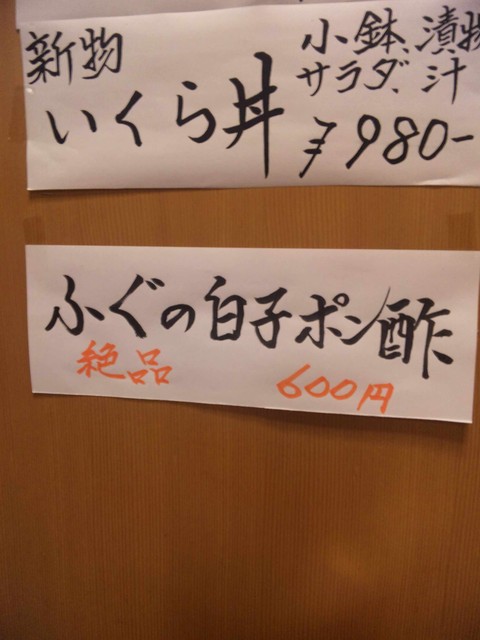 新物
小鉢、漬物
サラダ、汁
いくら丼
¥980-
ふぐの白子ポン酢
絶品
600円